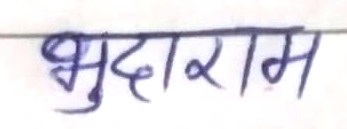 भुदाराम